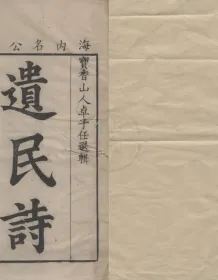 海內名公
寶香山人卓子任選輯
遺民詩